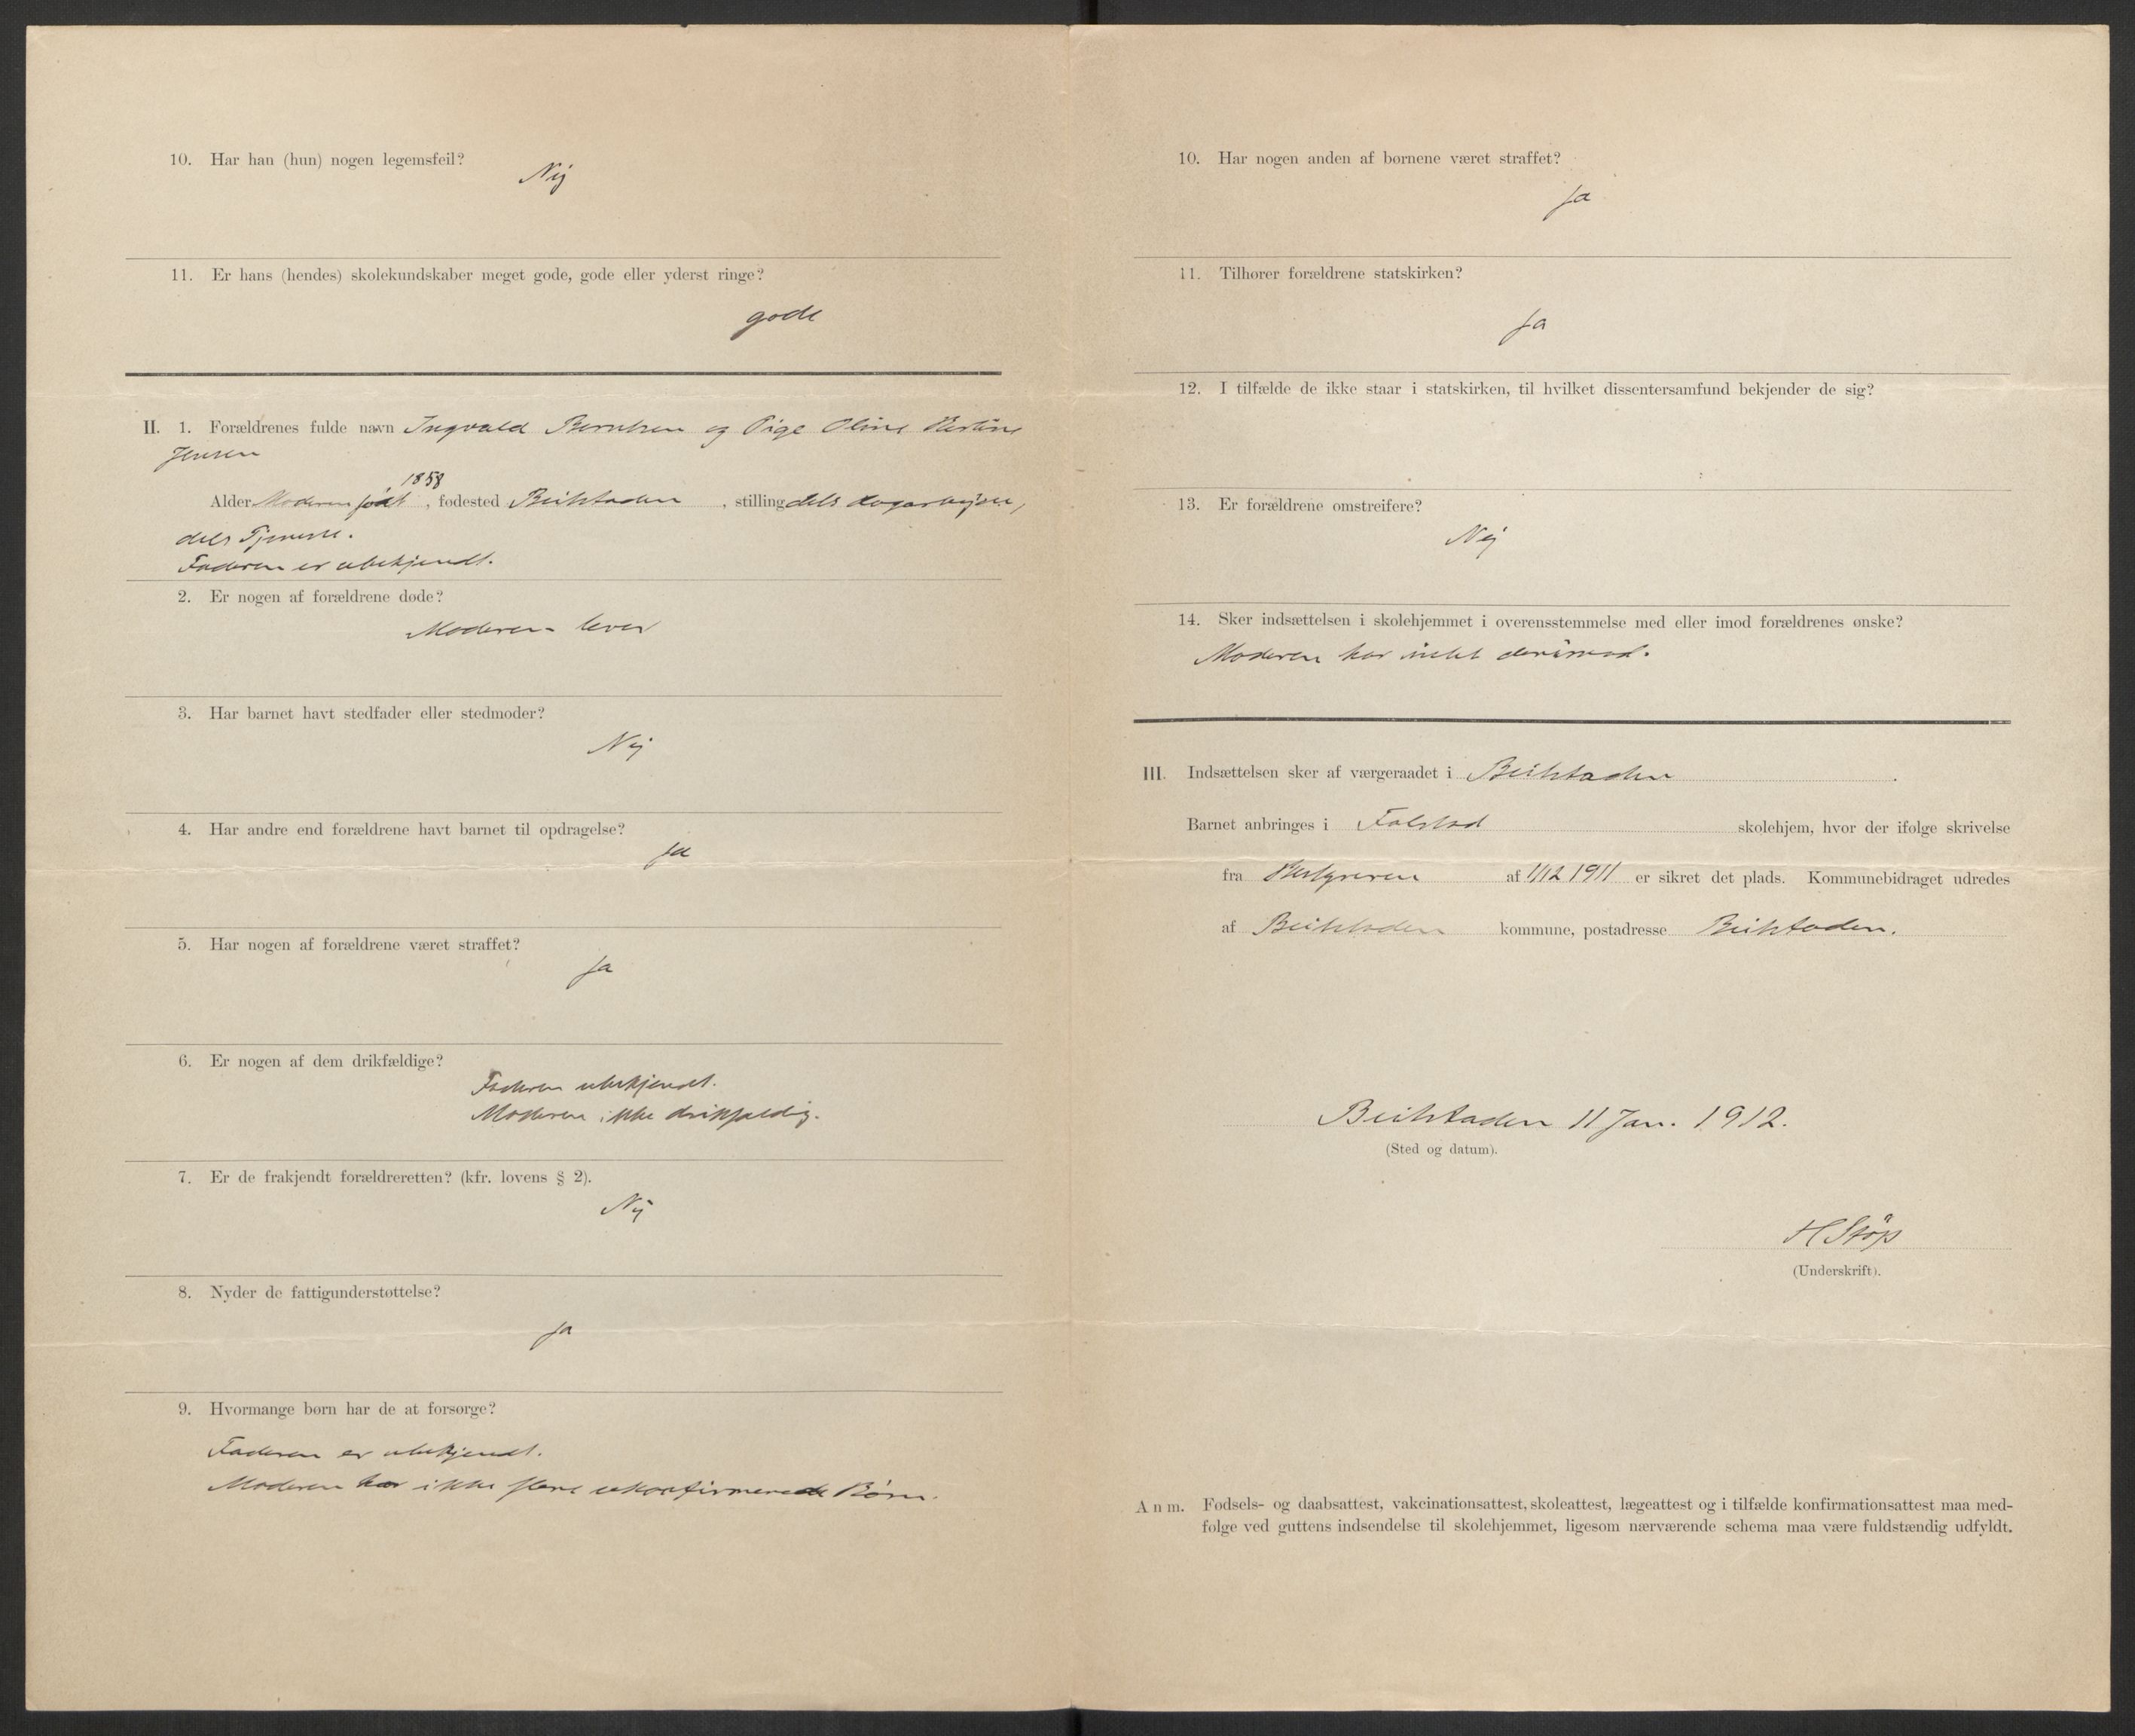 10. Har han (hun) nogen legemsfeil?
Nej
11. Er hans (hendes) skolekundskaber meget gode, gode eller yderst ringe?
gode
II. 1. Forældrenes fulde navn Ingvald Berntsen og Pige Oline Hertine
Jensen
1858
Alder Moderen født, fødested Beitstaden, stilling dels
dels Tjeneste.
Faderen er ubekjendt.
2. Er nogen af forældrene døde?
Moderen lever
3. Har barnet havt stedfader eller stedmoder?
Nej
4. Har andre end forældrene havt barnet til opdragelse?
Ja
5. Har nogen af forældrene været straffet?
Ja
6. Er nogen af dem drikfældige?
Faderen ubekjendt.
Moderen ikke drikfældig.
7. Er de frakjendt forældreretten? (kfr. lovens § 2).
Nej
8. Nyder de fattigunderstøttelse?
Ja
9. Hvormange børn har de at forsørge?
Faderen er ubekjendt.
Moderen har ikke flere ukonfirmerede Børn.
10. Har nogen anden af børnene været straffet?
Ja
11. Tilhører forældrene statskirken?
Ja
12. I tilfælde de ikke staar i statskirken, til hvilket dissentersamfund bekjender de sig?
13. Er forældrene omstreifere?
Nej
14. Sker indsættelsen i skolehjemmet i overensstemmelse med eller imod forældrenes ønske?
Moderen har intet derimod.
III. Indsættelsen sker af værgeraadet i Beitstaden.
Barnet anbringes i Falstad skolehjem, hvor der ifølge skrivelse
fra Bestyreren af 1/12 1911 er sikret det plads. Kommunebidraget udredes
af Beitstaden kommune, postadresse Beitstaden.
Beitstaden 11 Jan. 1912.
(Sted og datum).
H Støp
(Underskrift).
Anm. Fødsels- og daabsattest, vakcinationsattest, skoleattest, lægeattest og i tilfælde konfirmationsattest maa med-
følge ved guttens indsendelse til skolehjemmet, ligesom nærværende schema maa være fuldstændig udfyldt.